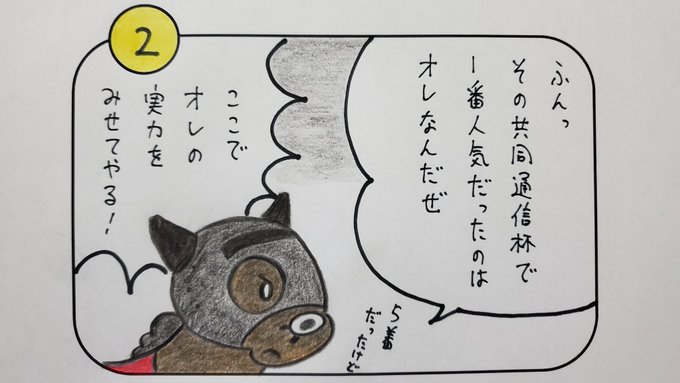 2
ふんっ
その共同通信杯で
1番人気だったのは
オレなんだぜ
5着
だったけど
ここで
オレの
実力を
みせてやる！